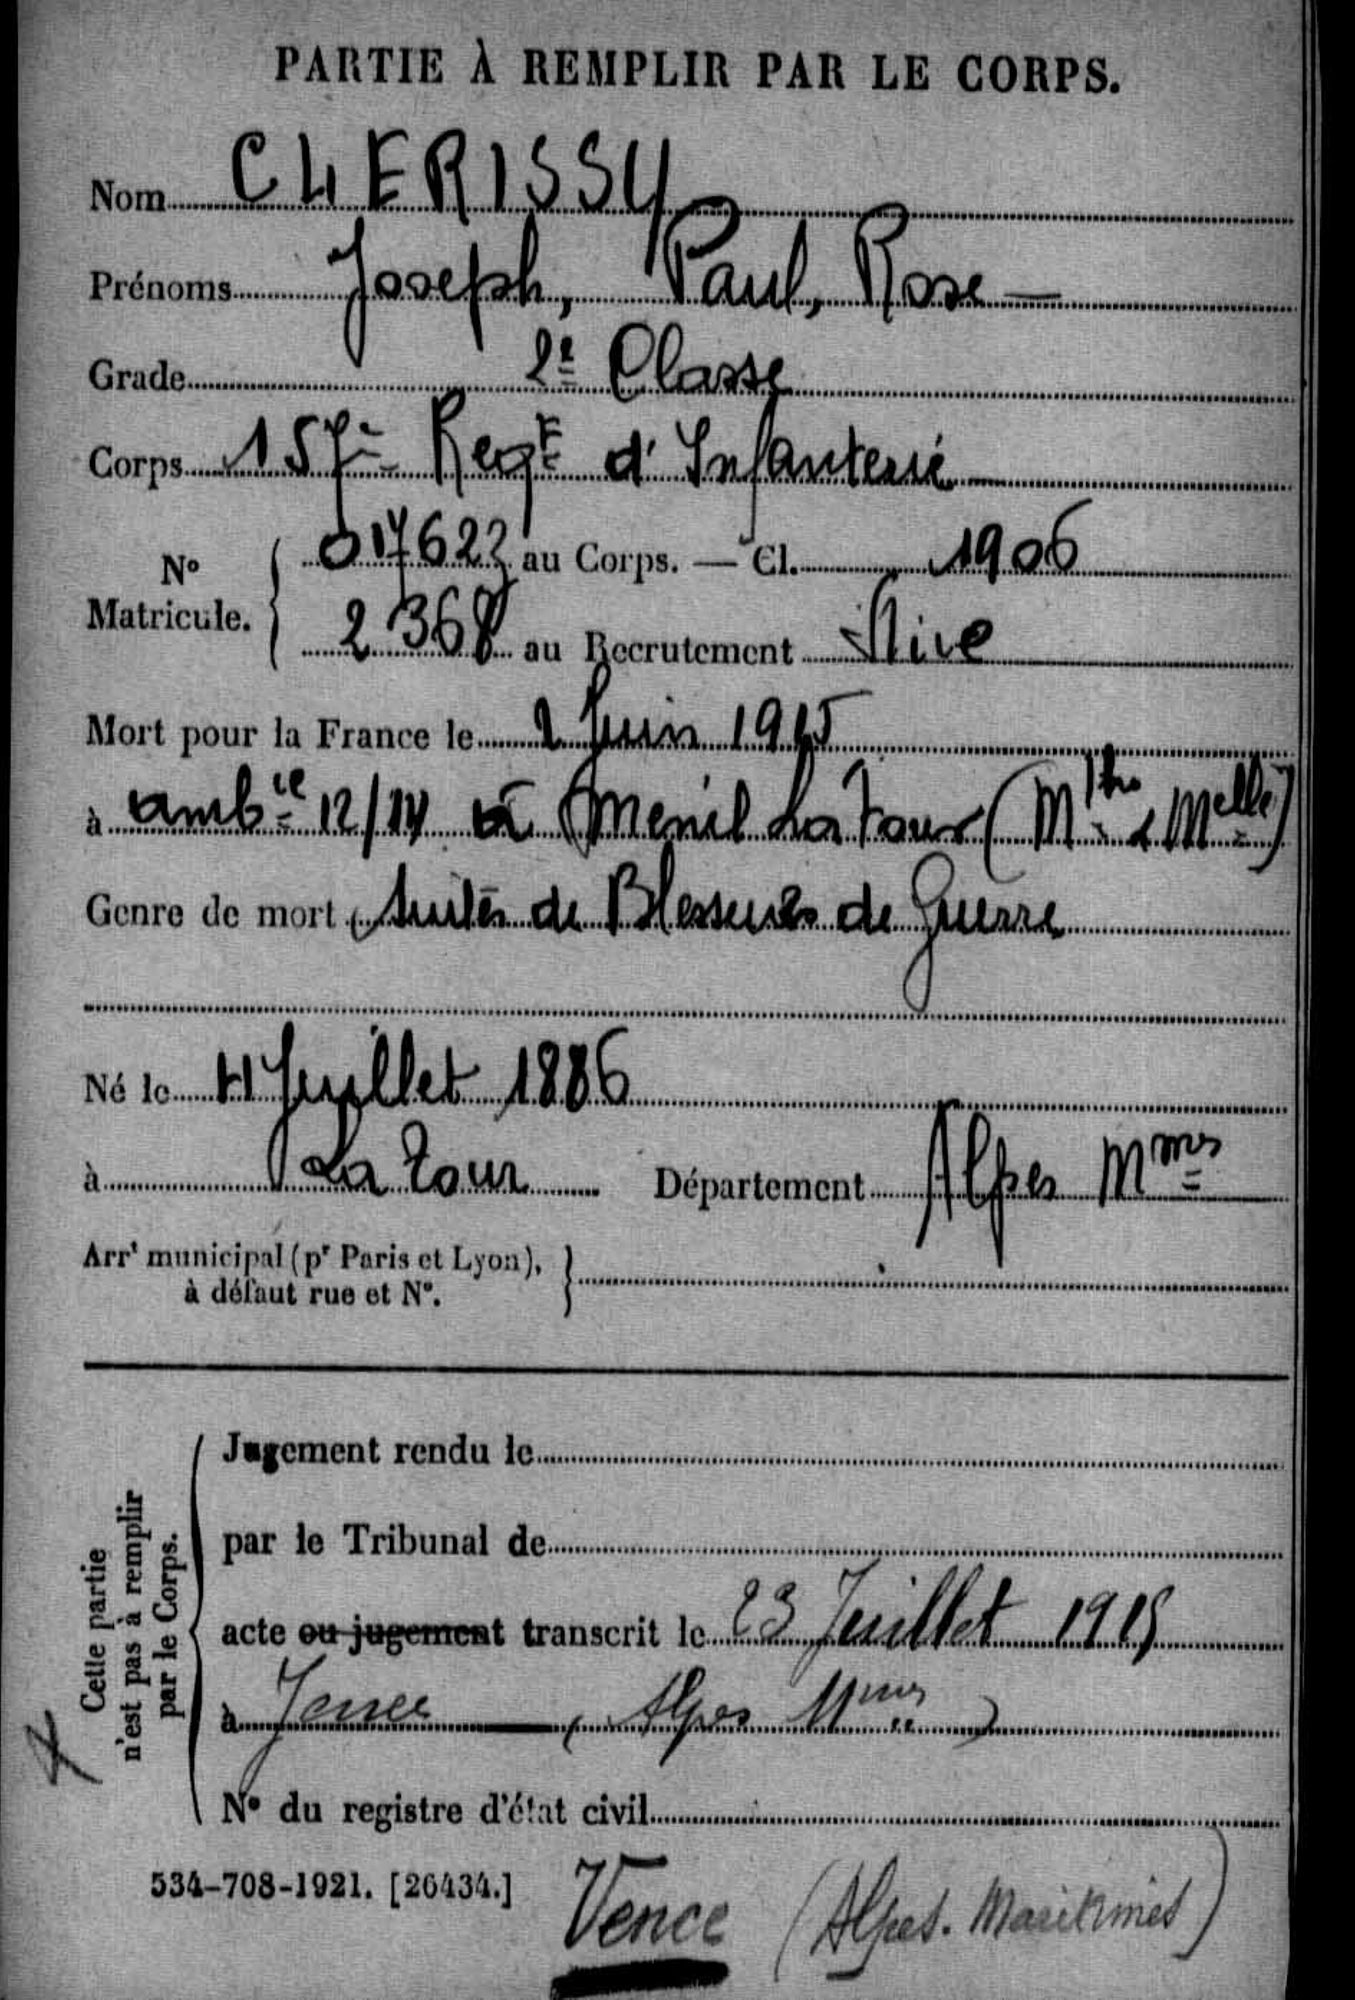 PARTIE À REMPLIR PAR LE CORPS.
Nom CHERISSY
Prénoms Joseph, Paul, Rose —
Grade 2e Classe
Corps 157e Regt d'Infanterie
No Matricule. { 017623 au Corps. — Cl. 1906
2368 au Recrutement Nice
Mort pour la France le 2 Juin 1915
à ambce 12/14 à Menil La Tour (Mthe & Melle)
Genre de mort Suites de Blessures de Guerre
Né le 11 Juillet 1886
à La Tour Département Alpes Mmes
Arrt municipal (pr Paris et Lyon),
à défaut rue et No. }
Cette partie
n'est pas à remplir
par le Corps.
Jugement rendu le
par le Tribunal de
acte ou jugement transcrit le 23 Juillet 1915
à (Alpes Mmes)
No du registre d'état civil
534-708-1921. [26434.]
Vence (Alpes. Maritimes)